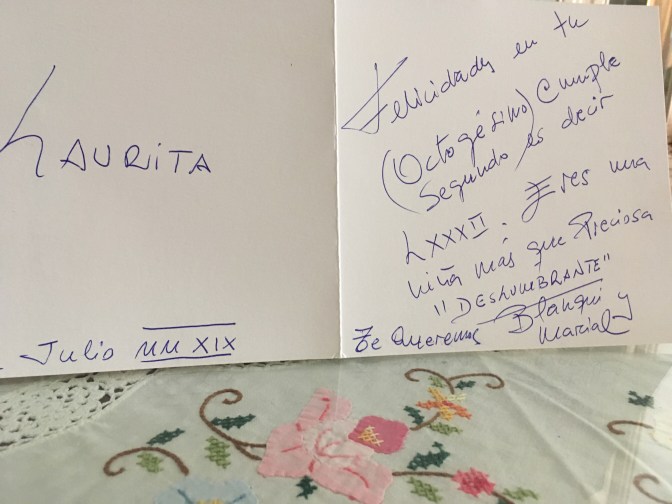 LAURITA
Julio MMXIX
Felicidades en tu
(Octogésimo) Cumple
Segundo es decir
LXXXII. Eres una
niña más que Preciosa
"DESLUMBRANTE"
Te Queremos Blanqui y
Marcial